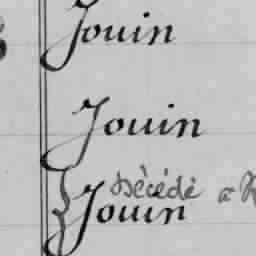 Jouin
Jouin
Décédé a
Jouin